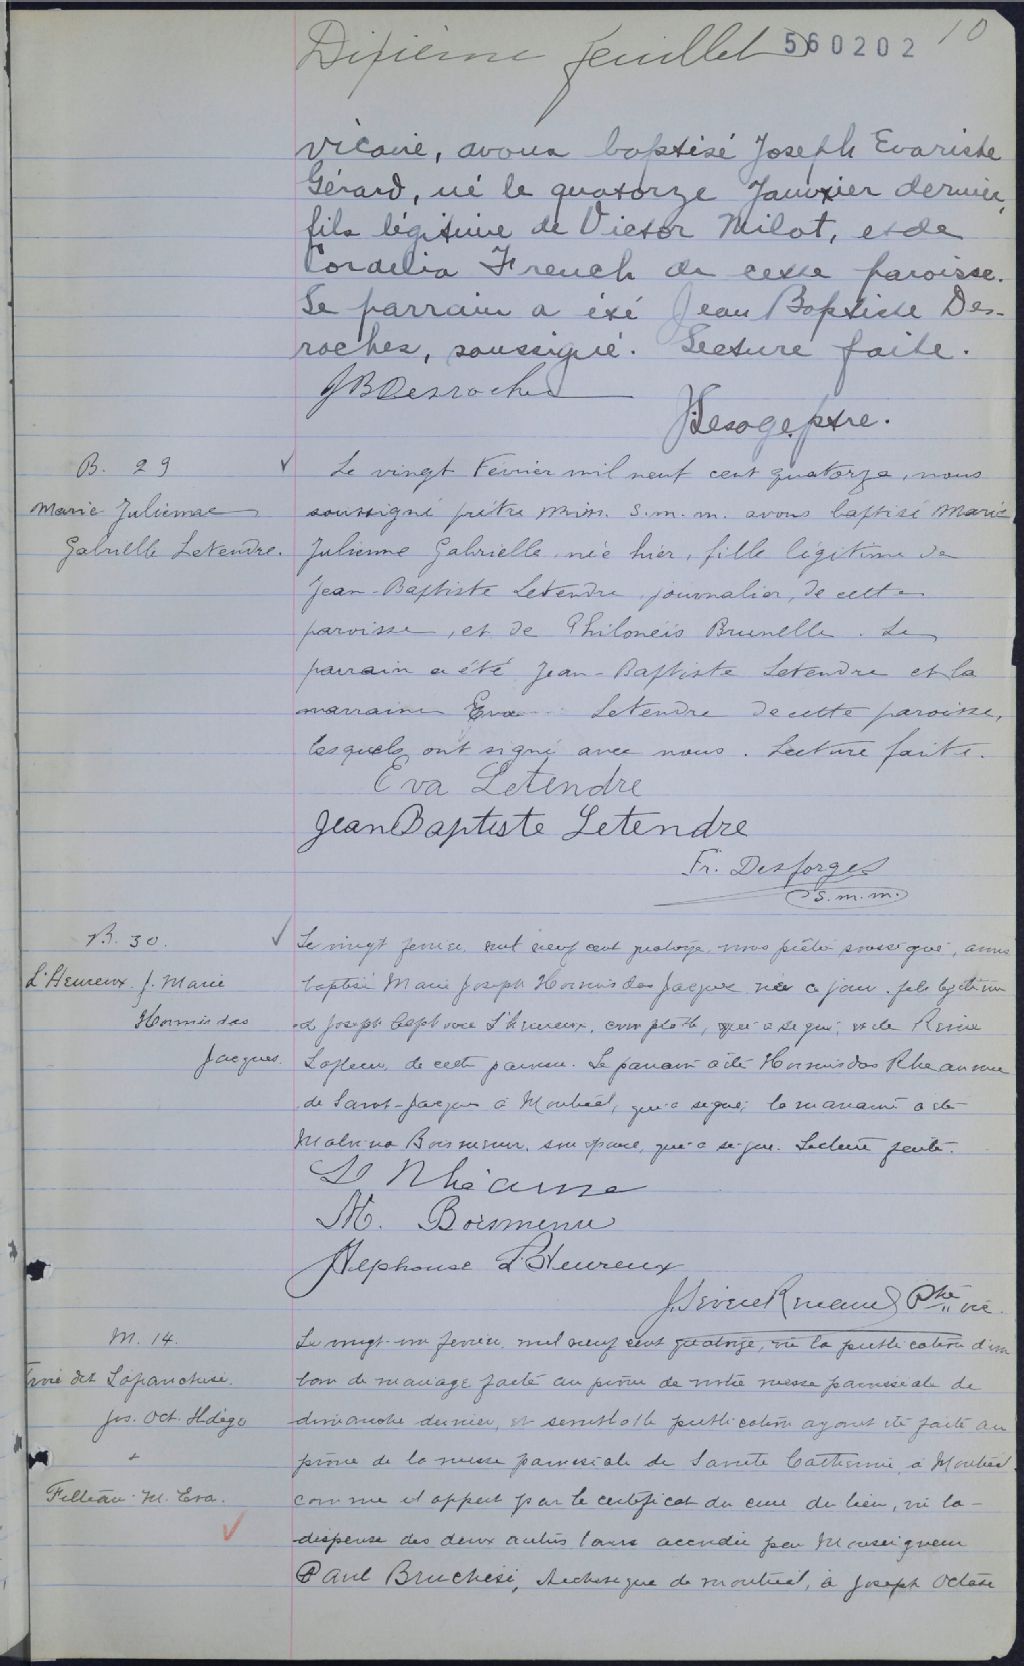 Dixième feuillet 560202 10
vicaire, avons baptisé Joseph Evariste
Gérard, né le quatorze Janvier dernier,
fils légitime de Victor Milot, et de
Cordelia French de cette paroisse.
Le parrain a été Jean Baptiste Des-
roches, soussigné. Lecture faite.
JB Desroches
J Lesage, ptre.
B. 29
Marie Julienne
Gabrielle Letendre.
Le vingt Février mil neuf cent quatorze, nous
soussigné prêtre miss. s.m.m. avons baptisé Marie
Julienne Gabrielle, née hier, fille légitime de
Jean-Baptiste Letendre, journalier, de cette
paroisse, et de Brunelle. Le
parrain a été Jean-Baptiste Letendre et la
marraine Eva Letendre de cette paroisse,
lesquels ont signé avec nous. Lecture faite.
Eva Letendre
Jean Baptiste Letendre
Fr. Desforges
s.m.m.
B. 30.
L'Heureux. J. Marie
Hormisdas
Jacques.
Le vingt fevrier, mil neuf cent quatorze, nous prêtre soussigné, avons
baptisé Marie Joseph Hormisdas Jacques né ce jour, fils légitime
de Joseph L'Heureux, comptable, qui a signé, et de
Lafleur, de cette paroisse. Le parrain a été Hormisdas Rheaume
de Saint-Jacques à Montréal, qui a signé; la marraine a été
Malvina Boismenu, son épouse, qui a signé. Lecture faite.
H Rhéaume
M. Boismenu
Alphonse L'Heureux
J. Renaud Ptre vic.
M. 14.
dit Lafranchise.
Jos. Oct. Hdège
+
Filleau. M. Eva.
Le vingt-un fevrier, mil neuf cent quatorze, vu la publication d'un
ban de mariage faite au prône de notre messe paroissiale de
dimanche dernier, et semblable publication ayant été faite au
prône de la messe paroissiale de Sainte Catherine, à Montréal
comme il appert par le certificat du curé du lieu, vu la
dispense des deux autres bans accordée par Monseigneur
Paul Bruchési, Archevêque de Montréal, à Joseph Octave